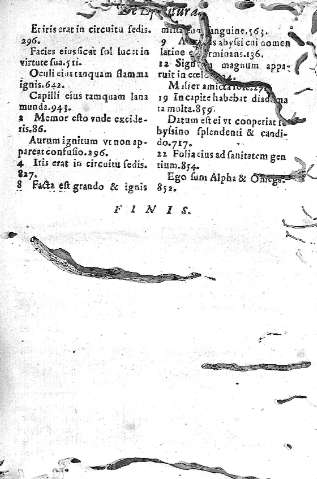 Et iris erat in circuitu sedis.
296.
Facies eius sicut sol lucet in
virtute sua.511.
Oculi eius tanquam flamma
ignis.642.
Capilli eius tamquam lana
munda.943.
2 Memor esto vnde excide-
ris.86.
Aurum ignitum vt non ap-
pareat confusio.296.
4 Iris erat in circuitu sedis.
827.
8 Facta est grando & ignis
sanguine.563.
9 abyssi cui nomen
latine exterminans.156.
12 Signum magnum appa-
ruit in
Mulier amicta
19 In capite habebat diadema
ta multa.859.
Datum est ei vt cooperiat se
byssino splendenti & candi-
do.717.
22 Folia eius ad sanitatem gen
tium.854.
Ego sum Alpha & Omega.
852.
FINIS.